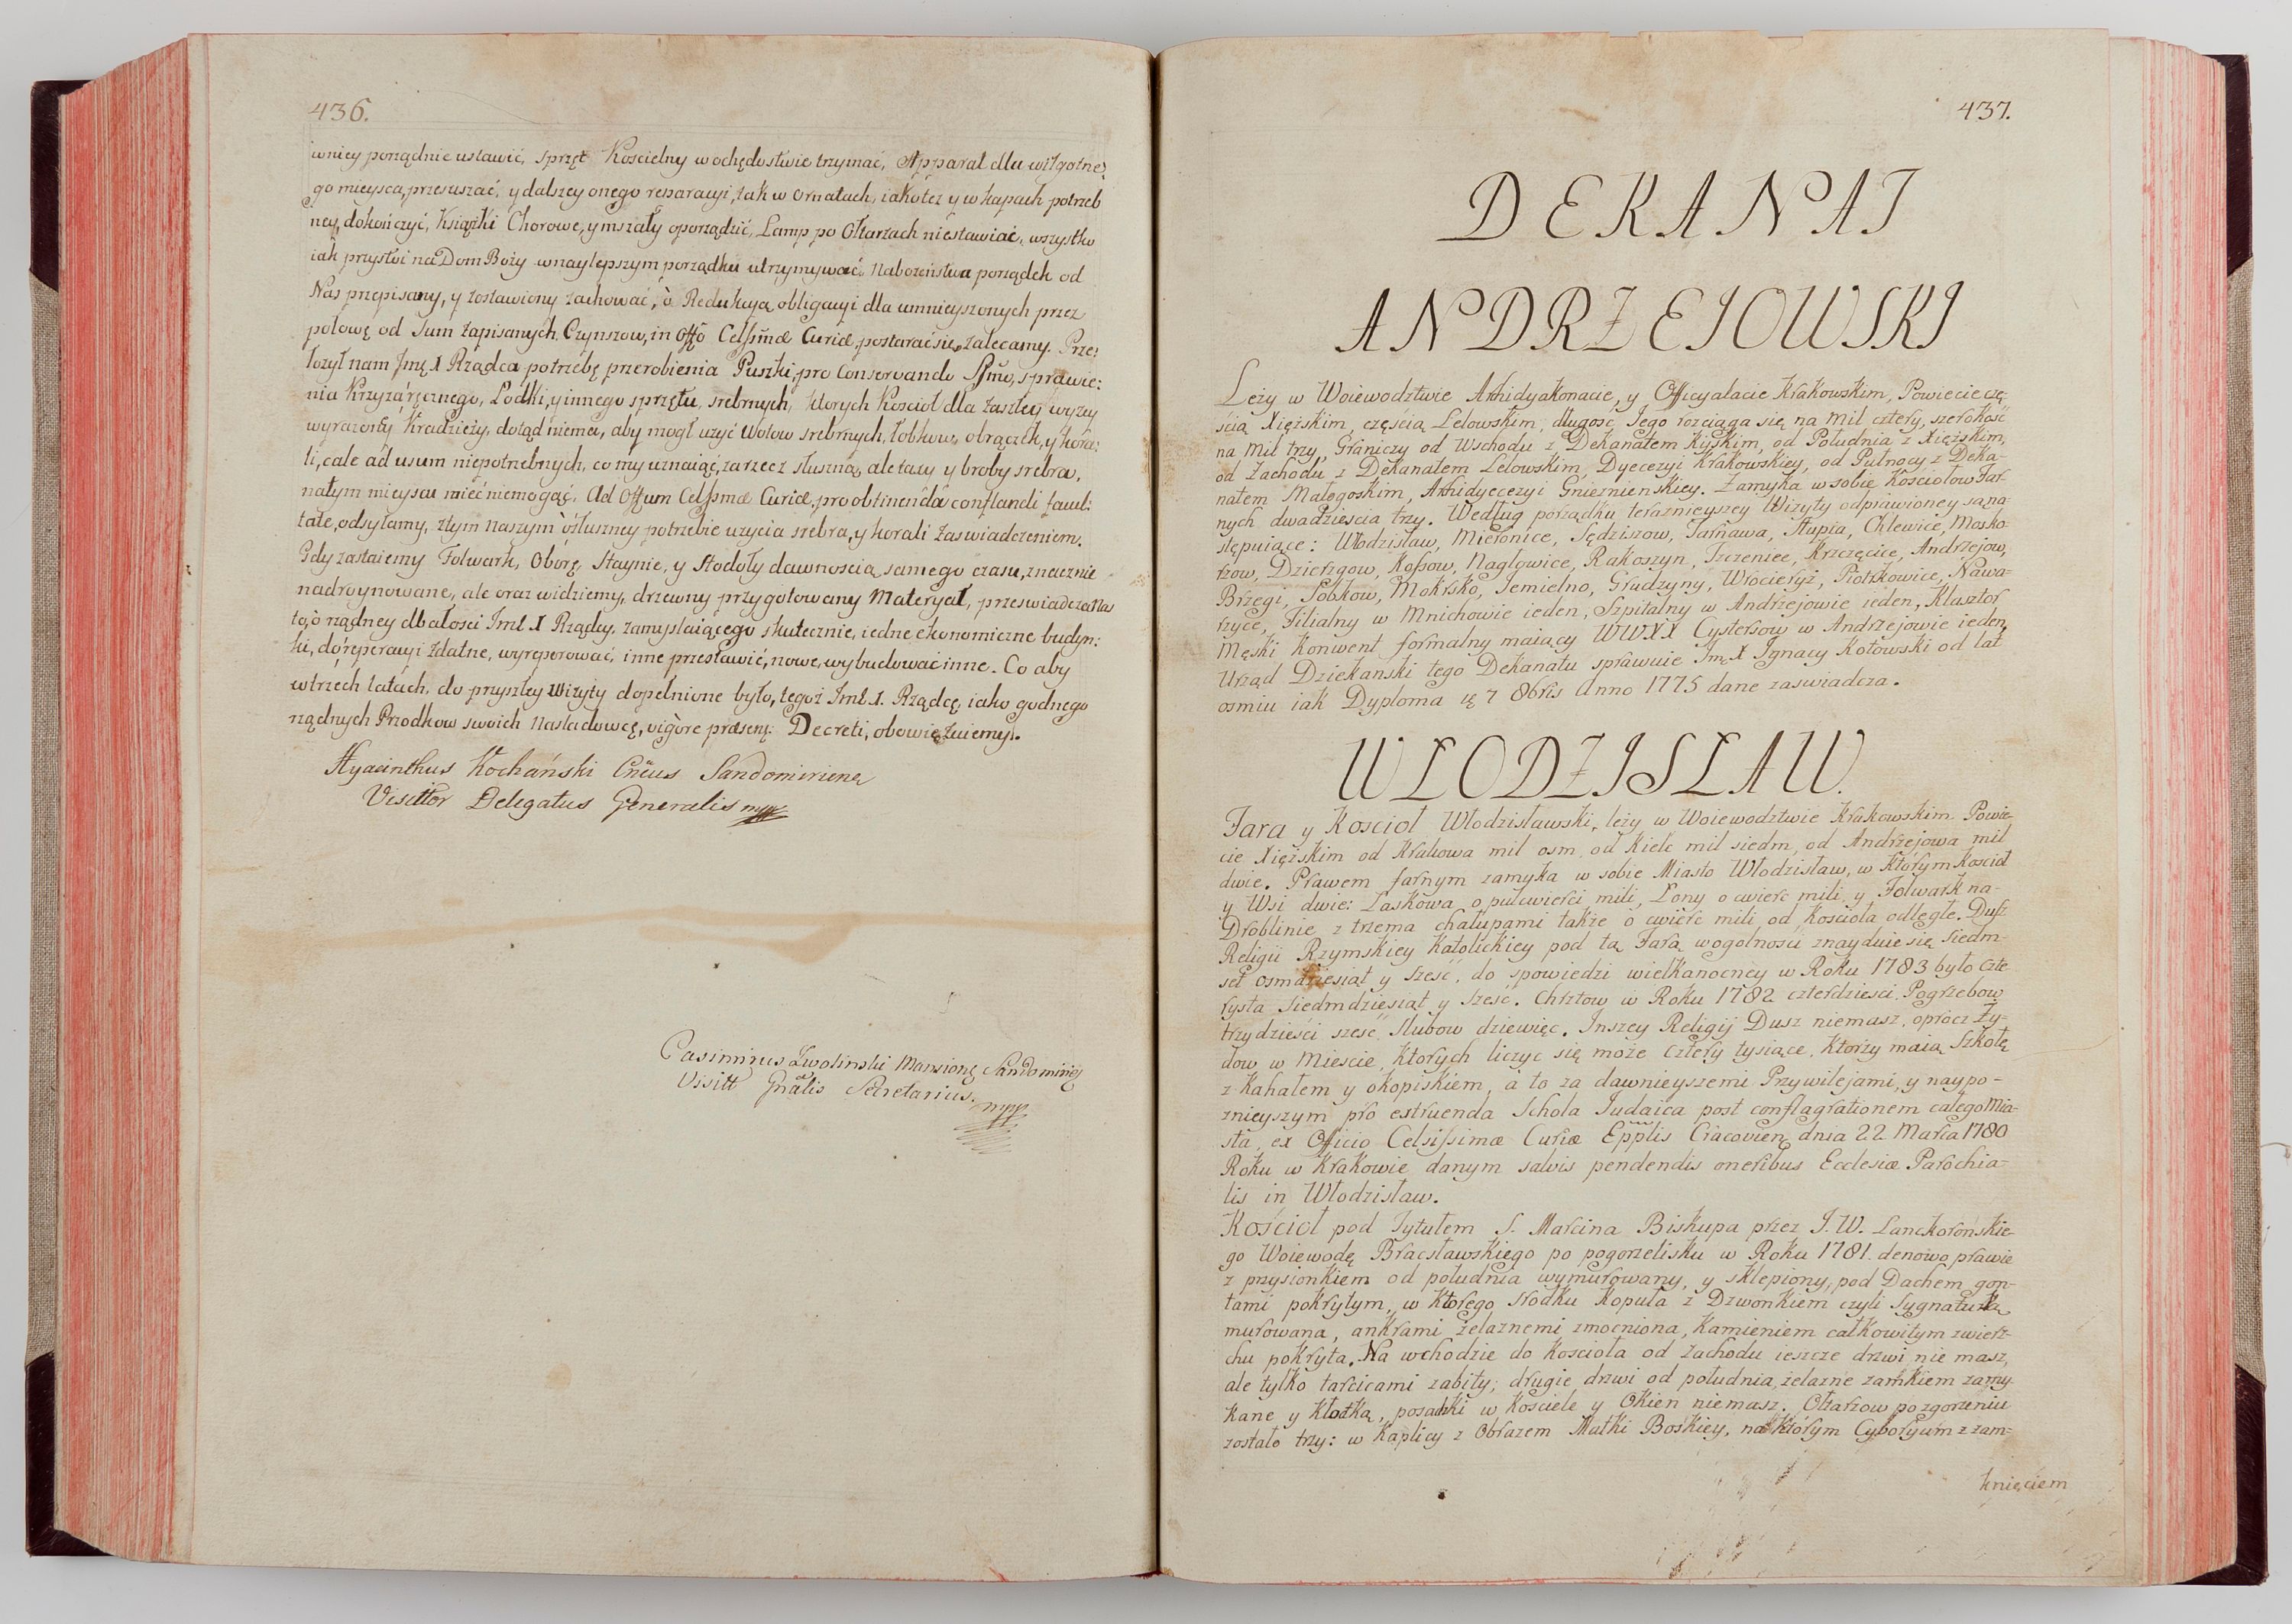 436.
wniey porządnie ustawić, sprzęt Koscielny wochędostwie trzymać, Apparat dla wilgotne,
go mieysca, przesuszać, y dalszey onego reparacyi, tak w ornatach, iakoteż y w kapach potrzeb
ney, dokończyć, Książki Chorowe, y mszały oporządzić, Lamp po Ołtarzach niestawiać, wszystko
iak przystoi na Dom Boży wnaylepszym porządku utrzymywać. Nabożeństwa porządek od
Nas przepisany, y zostawiony zachować, o Redukcyą obligacyi dla umnieyszonych przez
połowę od sum zapisanych Czynszow, in Offo Celssmæ Curiæ, postarać się, zalecamy. Prze:
łożył nam Jmę X Rządca potrzebę przerobienia Puszki, pro Conservando Ssmo, sprawie:
nia Krzyża ręcznego, Łodki, y innego sprzętu, srebrnych, ktorych Kosciół dla zaszłey wyżey
wyrażoney Kradzieży, dotąd niema, aby mogł użyć Wotow srebrnych, łobkow, obrączek, y kora:
li, cale ad usum niepotrzebnych, co my uznaiąc, za rzecz słuszną, ale taxy y proby srebra,
natym mieyscu mieć niemogąc, Ad Offum Celssmæ Curiæ, pro obtinenda conflandi facul:
tate, odsyłamy, ztym naszym o słuszney potrzebie użycia srebra, y korali zaswiadczeniem.
Gdy zastaiemy Folwark, Oborę, Staynie, y Stodoły dawnoscią samego czasu, znacznie
nadroynowane, ale oraz widziemy, drzewny przygotowany Materyał, przeswiadcza Nas
to, o rządney dbałosci Jmć X Rządcy, zamyslaiącego skutecznie, iedne ekonomiczne budyn:
ki, do reperacyi zdatne, wyreperować, inne przestawić, nowe, wybudować inne. Co aby
wtrzech latach, do przyszłey Wizyty dopełnione było, tegoż Jmć X. Rządcę, iako godnego
rządnych Przodkow swoich nasladowcę, vigore præsen: Decreti, obowiązuiemy.
Hyacinthus Kochański Cñcus Sandomirien
Visittor Delegatus Generalis mpp
Casimirus Zwolinski Mansion Sandomirien
Visitt Gnalis Secretarius. mpp
437.
DEKANAT
ANDRZEIOWSKI
Leży w Woiewodztwie Archidyakonacie, y Officyalacie Krakowskim, Powiecie czę-
ścią Xiężskim, częścią Lelowskim, długość Jego rozciąga się na mil cztery, szerokość
na mil trzy, Graniczy od Wschodu z Dekanatem Kijskim, od Południa z Xiężskim,
od Zachodu z Dekanatem Lelowskim Dyecezyi Krakowskiey, od Pułnocy z Deka-
natem Małogoskim, Archidyecezyi Gnieznienskiey. Zamyka w sobie Kosciołow Far-
nych dwadziescia trzy. Według porządku terazniejszey Wizyty odprawioney są na-
stępuiące: Włodzisław, Mieronice, Sędziszow, Tarnawa, Słupia, Chlewice, Mosko-
rzow, Dzierzgow, Kossow, Nagłowice, Rakoszyn, Jzczeniec, Krzcięcice, Andrzejow,
Brzegi, Sobkow, Mokrsko, Jemielno, Grudzyny, Wrocieryż, Piotrkowice, Nawa-
rzyce, Filialny w Mnichowie ieden, Szpitalny w Andrzejowie ieden, Klasztor
Męski Konwent formalny maiący WWXX Cystersow w Andrzejowie ieden,
Urząd Dziekanski tego Dekanatu sprawuie Jmę X Ignacy Kotowski od lat
osmiu iak Dyploma ię 7 8bris Anno 1775 dane zaswiadcza.
WŁODZISŁAW.
Fara y Kosciół Włodzisławski, leży w Woiewodztwie Krakowskim. Powie-
cie Xiężskim od Krakowa mil osm, od Kielc mil siedm, od Andrzejowa mil
dwie. Prawem farnym zamyka w sobie Miasto Włodzisław, w którym Kosciół
y Wsi dwie: Laskowa o pułcwierci mili, Łony o cwierc mili, y Folwark na-
Droblinie z trzema chałupami także o cwierc mili od Kosciola odległe. Dusz
Religii Rzymskiey Katolickiey pod tą Farą wogolnosci znayduie się Siedm-
set osmdziesiąt y szesć, do spowiedzi wielkanocney w Roku 1783 było czte-
rysta siedmdziesiąt y szesć. Chrztow w Roku 1782 czterdziesci. Pogrzebow
trzydzieści szesć Slubow dziewięc. Inszey Religij Dusz niemasz, oprocz Ży-
dow w Miescie, ktorych liczyc się może cztery tysiące, Ktorzy maią Szkołę
z Kahałem y okopiskiem, a to za dawnieyszemi Przywilejami, y naypo-
znieyszym pro extruenda Schola Judaica post conflagrationem całego Mia-
sta, ex Officio Celsissimæ Curiæ Epplis Cracovien dnia 22 Marca 1780
Roku w Krakowie danym salvis pendendis oneribus Ecclesiæ Parochia-
lis in Włodzisław.
Kościoł pod Tytułem S. Marcina Biskupa przez J.W. Lanckorońskie-
go Woiewodę Bracsławskiego po pogorzelisku w Roku 1781. denowo prawie
z przysionkiem od południa wymurowany, y sklepiony, pod Dachem gon-
tami pokrytym, w ktorego srodku kopuła z Dzwonkiem czyli Sygnaturką
murowana, ankrami żelaznemi zmocniona, Kamieniem całkowitym zwierz-
chu pokryta. Na wchodzie do Kosciola od zachodu ieszcze drzwi nie masz,
ale tylko tarcicami zabity; drugie drzwi od południa, żelazne zamkiem zamy-
kane y kłotką, posadzki w Kosciele y Okien niemasz. Ołtarzow po zgorzeniu
zostało trzy: w Kaplicy z Obrazem Matki Boskiey, na którym Cyboryum z zam-
knięciem